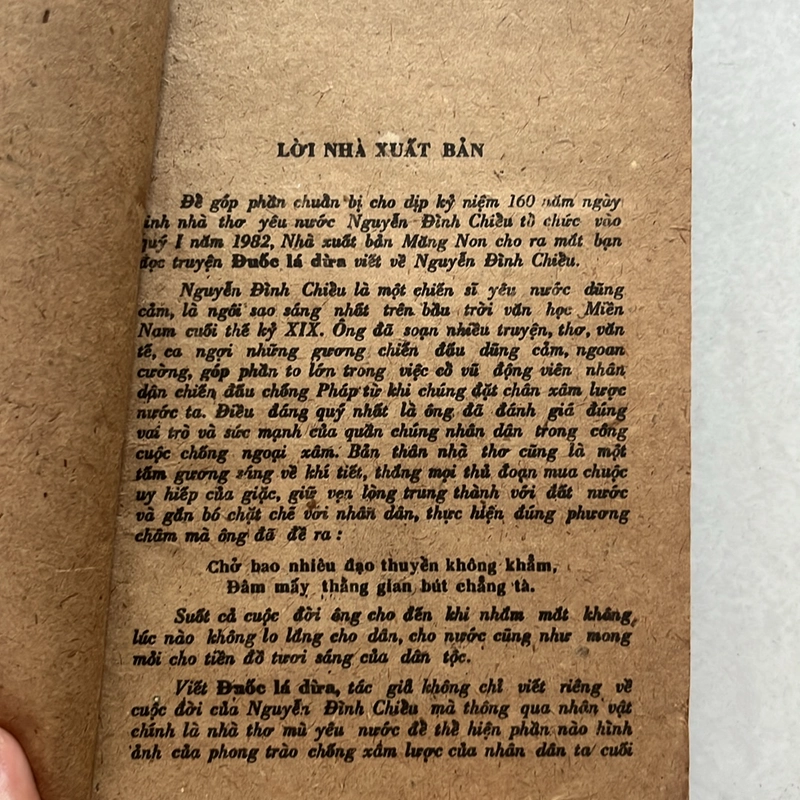 LỜI NHÀ XUẤT BẢN
Để góp phần chuẩn bị cho dịp kỷ niệm 160 năm ngày
sinh nhà thơ yêu nước Nguyễn Đình Chiều tổ chức vào
quý I năm 1982, Nhà xuất bản Măng Non cho ra mắt bạn
đọc truyện Đuốc lá dừa viết về Nguyễn Đình Chiều.
Nguyễn Đình Chiều là một chiến sĩ yêu nước dũng
cảm, là ngôi sao sáng nhất trên bầu trời văn học Miền
Nam cuối thế kỷ XIX. Ông đã soạn nhiều truyện, thơ, văn
tế, ca ngợi những gương chiến đấu dũng cảm, ngoan
cường, góp phần to lớn trong việc cổ vũ động viên nhân
dân chiến đấu chống Pháp từ khi chúng đặt chân xâm lược
nước ta. Điều đáng quý nhất là ông đã đánh giá đúng
vai trò và sức mạnh của quần chúng nhân dân trong công
cuộc chống ngoại xâm. Bản thân nhà thơ cũng là một
tấm gương sáng về khí tiết, thắng mọi thủ đoạn mua chuộc
uy hiếp của giặc, giữ vẹn lòng trung thành với đất nước
và gắn bó chặt chẽ với nhân dân, thực hiện đúng phương
châm mà ông đã đề ra :
Chở bao nhiêu đạo thuyền không khẳm,
Đâm mấy thằng gian bút chẳng tà.
Suốt cả cuộc đời ông cho đến khi nhắm mắt không,
lúc nào không lo lắng cho dân, cho nước cũng như mong
mỏi cho tiền đồ tươi sáng của dân tộc.
Viết Đuốc lá dừa, tác giả không chỉ viết riêng về
cuộc đời của Nguyễn Đình Chiều mà thông qua nhân vật
chính là nhà thơ mù yêu nước để thể hiện phần nào hình
ảnh của phong trào chống xâm lược của nhân dân ta cuối